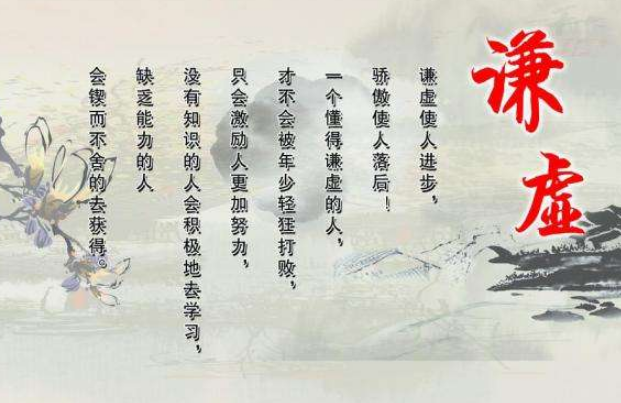 谦虚
谦虚使人进步，
骄傲使人落后！
一个懂得谦虚的人，
才不会被年少轻狂打败，
只会激励人更加努力，
没有知识的人会积极地去学习，
缺乏能力的人
会锲而不舍的去获得。